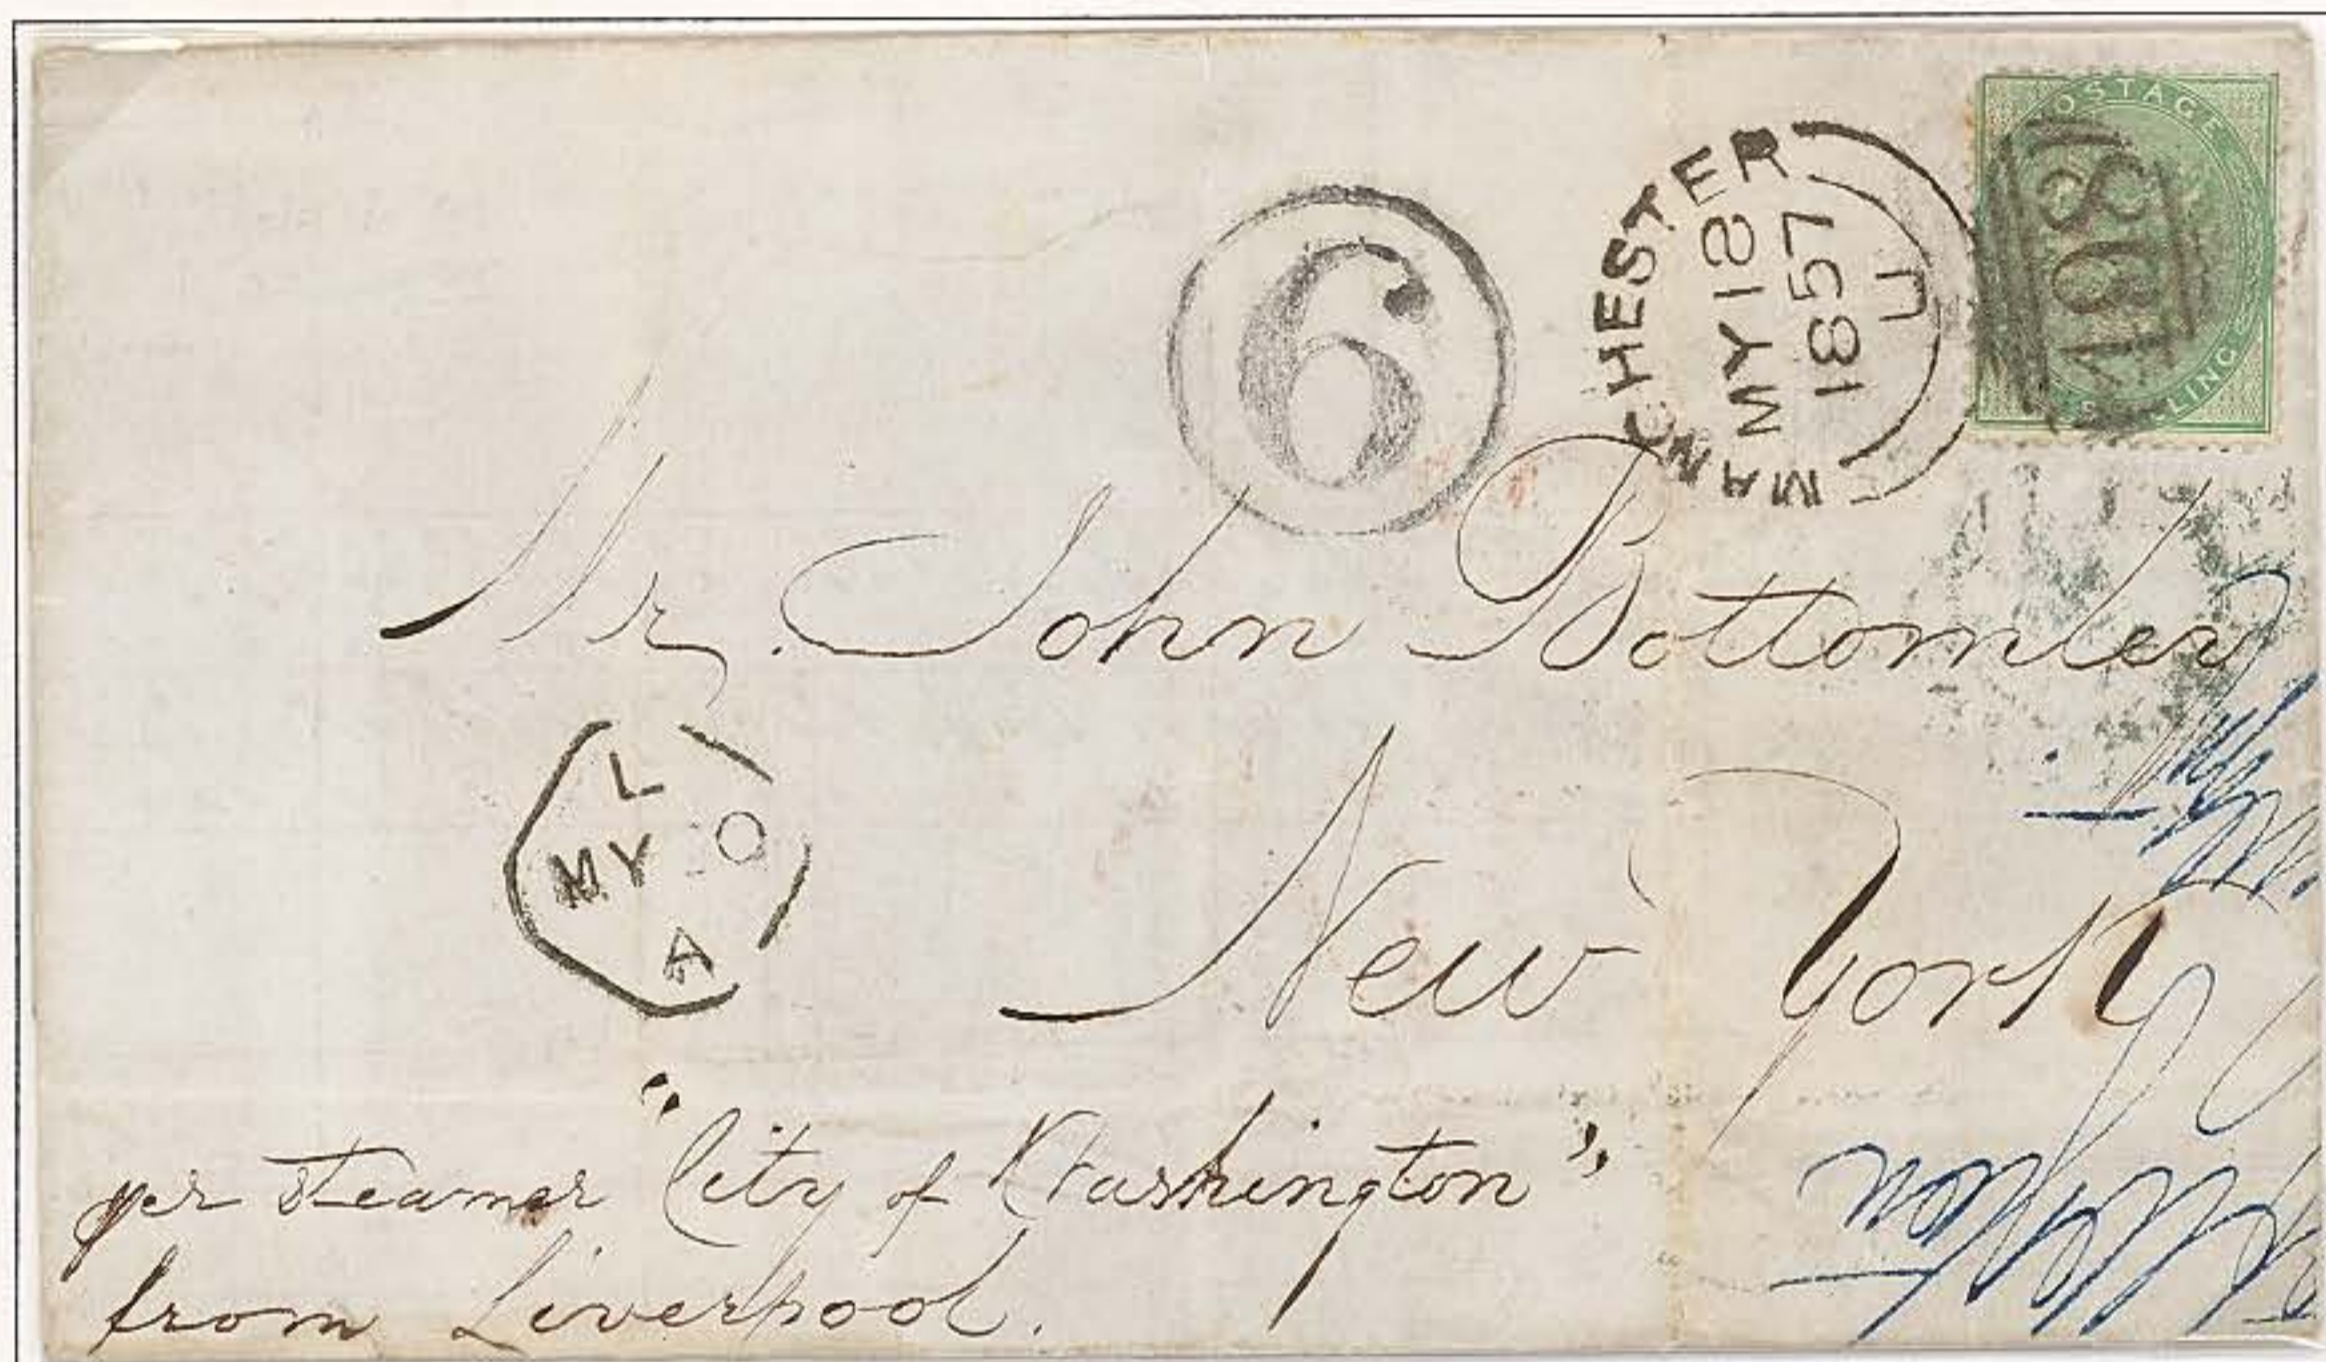 POSTAGE
498
LING
MANCHESTER
MY 18
1857
U
6
Mr. John Bottomley
New York
L
MY O
A
"
per steamer "City of Washington"
from Liverpool.